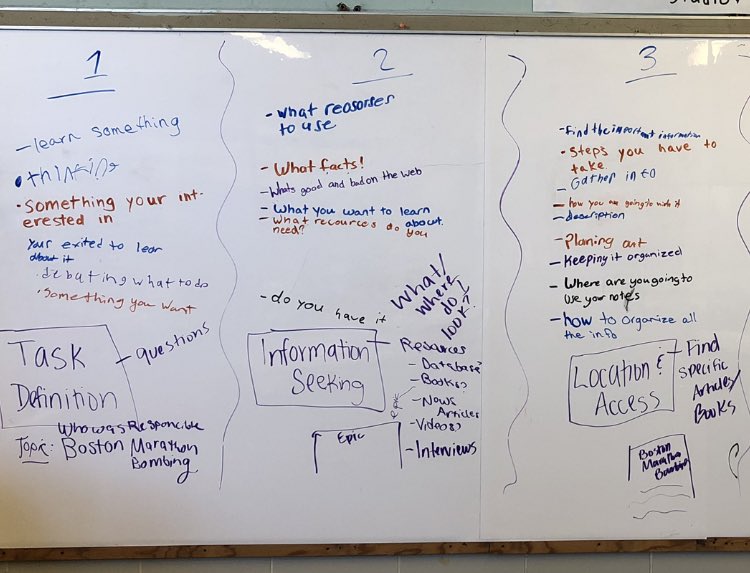 1
-learn something
•thinking
•something your int-
erested in
Your exited to lear
about it
•debating what to do
•something you want
Task
Definition
-questions
Who was Responcible
Topic: Boston Marathon
Bombing
2
-what reasorses
to use
-What facts!
-whats good and bad on the web
-What you want to learn
about.
-what recources do you
need?
-do you have it
What/
where
do I
look?
Information
Seeking
-Resources
-Database?
-Books?
-News
Articles
-Videos?
-Interviews
Epic
Epic
3
-Find the important information
•steps you have to
take
-Gather info
-how you are going to
-description
-Planing out
-Keeping it organized
-Where are you going to
use your notes
-how to organize all
the info
Location &
Access
-Find
specific
Articles/
Books
Boston
Marathon
Bombing